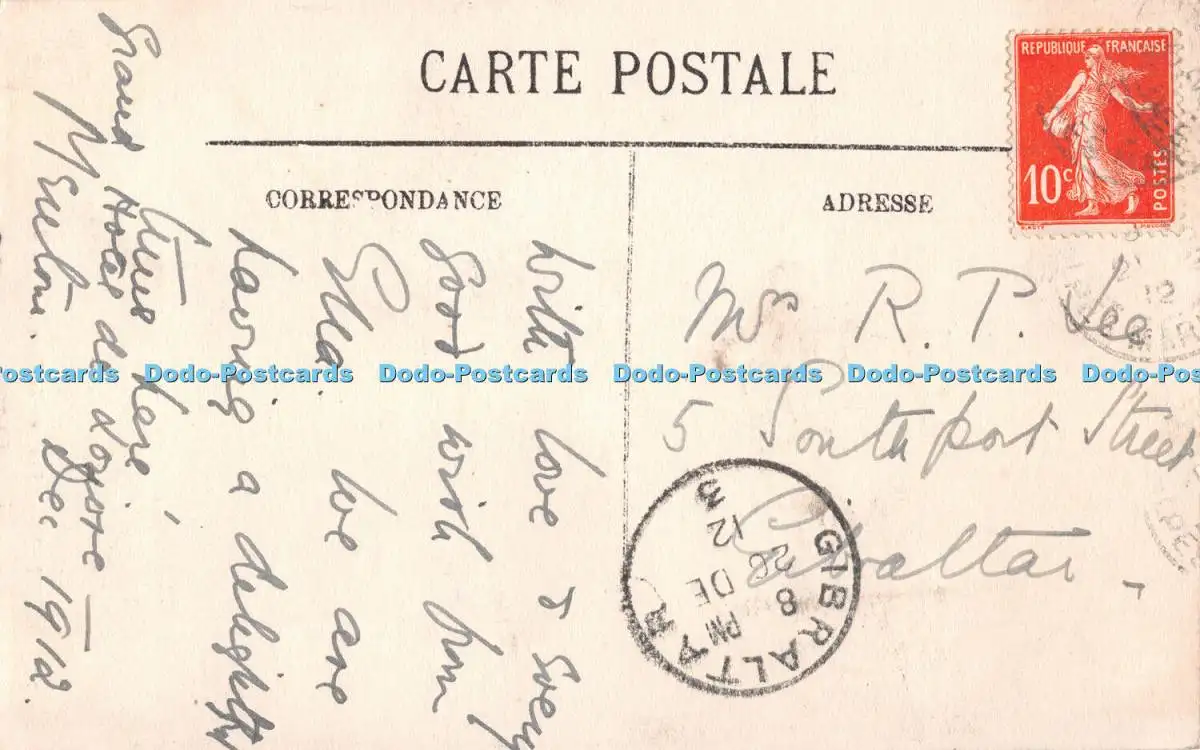 CARTE POSTALE
CORRESPONDANCE
ADRESSE
REPUBLIQUE FRANÇAISE
10c
POSTES
With love & every
good wish from
Ella. We are
having a delightful
time here,
Grand Hotel du Louvre
Menton. Dec 1912
Mrs R. P.
5 Southport Street
Gibraltar
GIBRALTAR
8 PM
DE
12
3
Dodo-Postcards Dodo-Postcards Dodo-Postcards Dodo-Postcards Dodo-Postcards